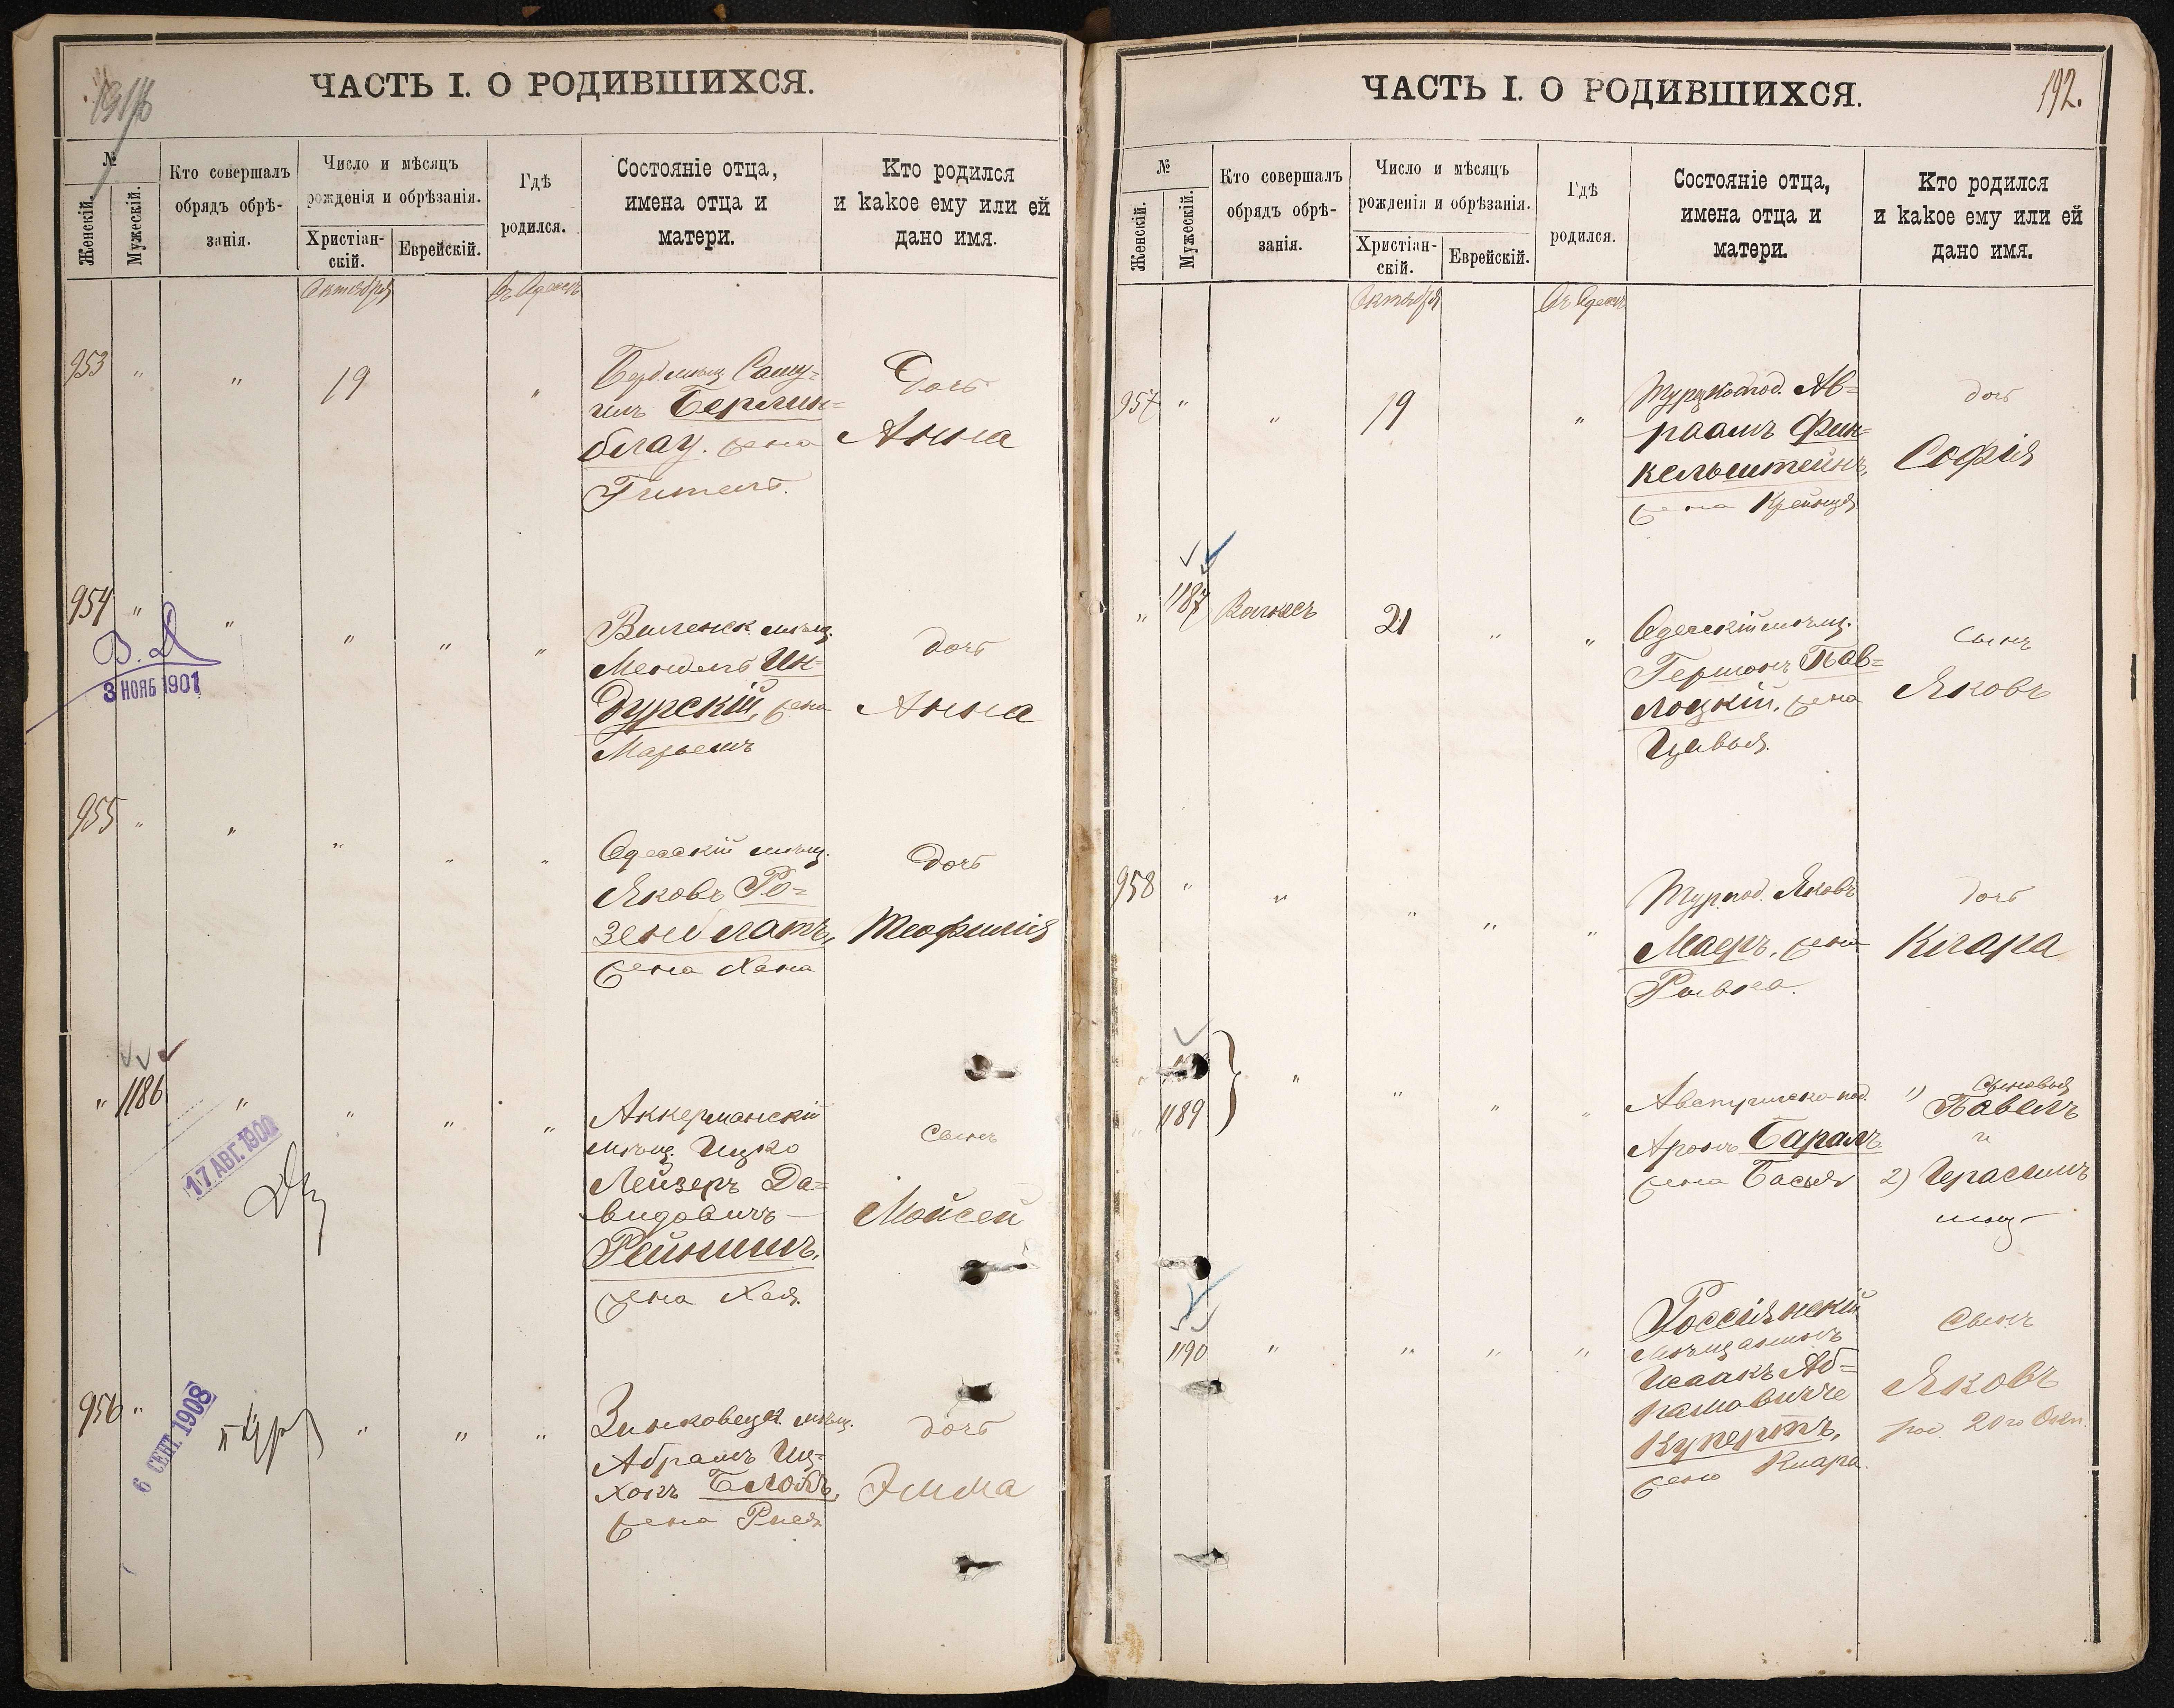 ЧАСТЬ I. О РОДИВШИХСЯ.
№
Женскій.
Мужескій.
Кто совершалъ
обрядъ обрѣ-
занія.
Число и мѣсяцъ
рожденія и обрѣзанія.
Христіан-
скій.
Еврейскій.
Гдѣ
родился.
Состояніе отца,
имена отца и
матери.
Кто родился
и какое ему или ей
дано имя.
Октября
Въ Одессѣ
953 " " 19 "
Самуилъ Берлин=
блау. жена
Гитель.
Дочь
Анна
954 " " " " "
В. Д
3 НОЯБ 1901
Виленск. мѣщ.
Мендель Ин=
дурскій, жена
Марьемъ
дочь
Анна
955 " " " " "
Одесскій мѣщ.
Яковъ Ро=
зенблатъ,
жена Хана
Дочь
Теофилія
" 1186 " " " "
17 АВГ. 1900
Аккерманскій
мѣщ. Ицко
Лейзеръ Да=
видовичъ
Рейнишъ,
жена Хая.
Сынъ
Мойсей
956 " " " "
6 СЕНТ. 1908
Зиньковецк. мѣщ.
Абрамъ Иц=
хокъ
жена Рися
дочь
Эмма
ЧАСТЬ I. О РОДИВШИХСЯ.
192.
№
Женскій.
Мужескій.
Кто совершалъ
обрядъ обрѣ-
занія.
Число и мѣсяцъ
рожденія и обрѣзанія.
Христіан-
скій.
Еврейскій.
Гдѣ
родился.
Состояніе отца,
имена отца и
матери.
Кто родился
и какое ему или ей
дано имя.
Октября
Въ Одессѣ
957 " " 19 "
Турецкоподд. Ав=
раамъ Фин=
кельштейнъ,
жена Крейнця
дочь
Софія
" 1187 21 " "
Одесскій мѣщ.
Гершонъ Пав=
лоцкій, жена
Цивья.
Сынъ
Яковъ
958 " " " " "
Тур. под. Яковъ
Маеръ, жена
Ривка.
дочь
Клара
1189 " " " "
Австрійско-под.
Аронъ Баралъ
жена Бася
Сыновья
1) Павелъ
и
2) Герасимъ
1190 " " " "
Россіянскій
мѣщанинъ
Исаакъ Аб=
рамовичъ
Купертъ,
жена Клара.
Сынъ
Яковъ
род. 20го Окт.